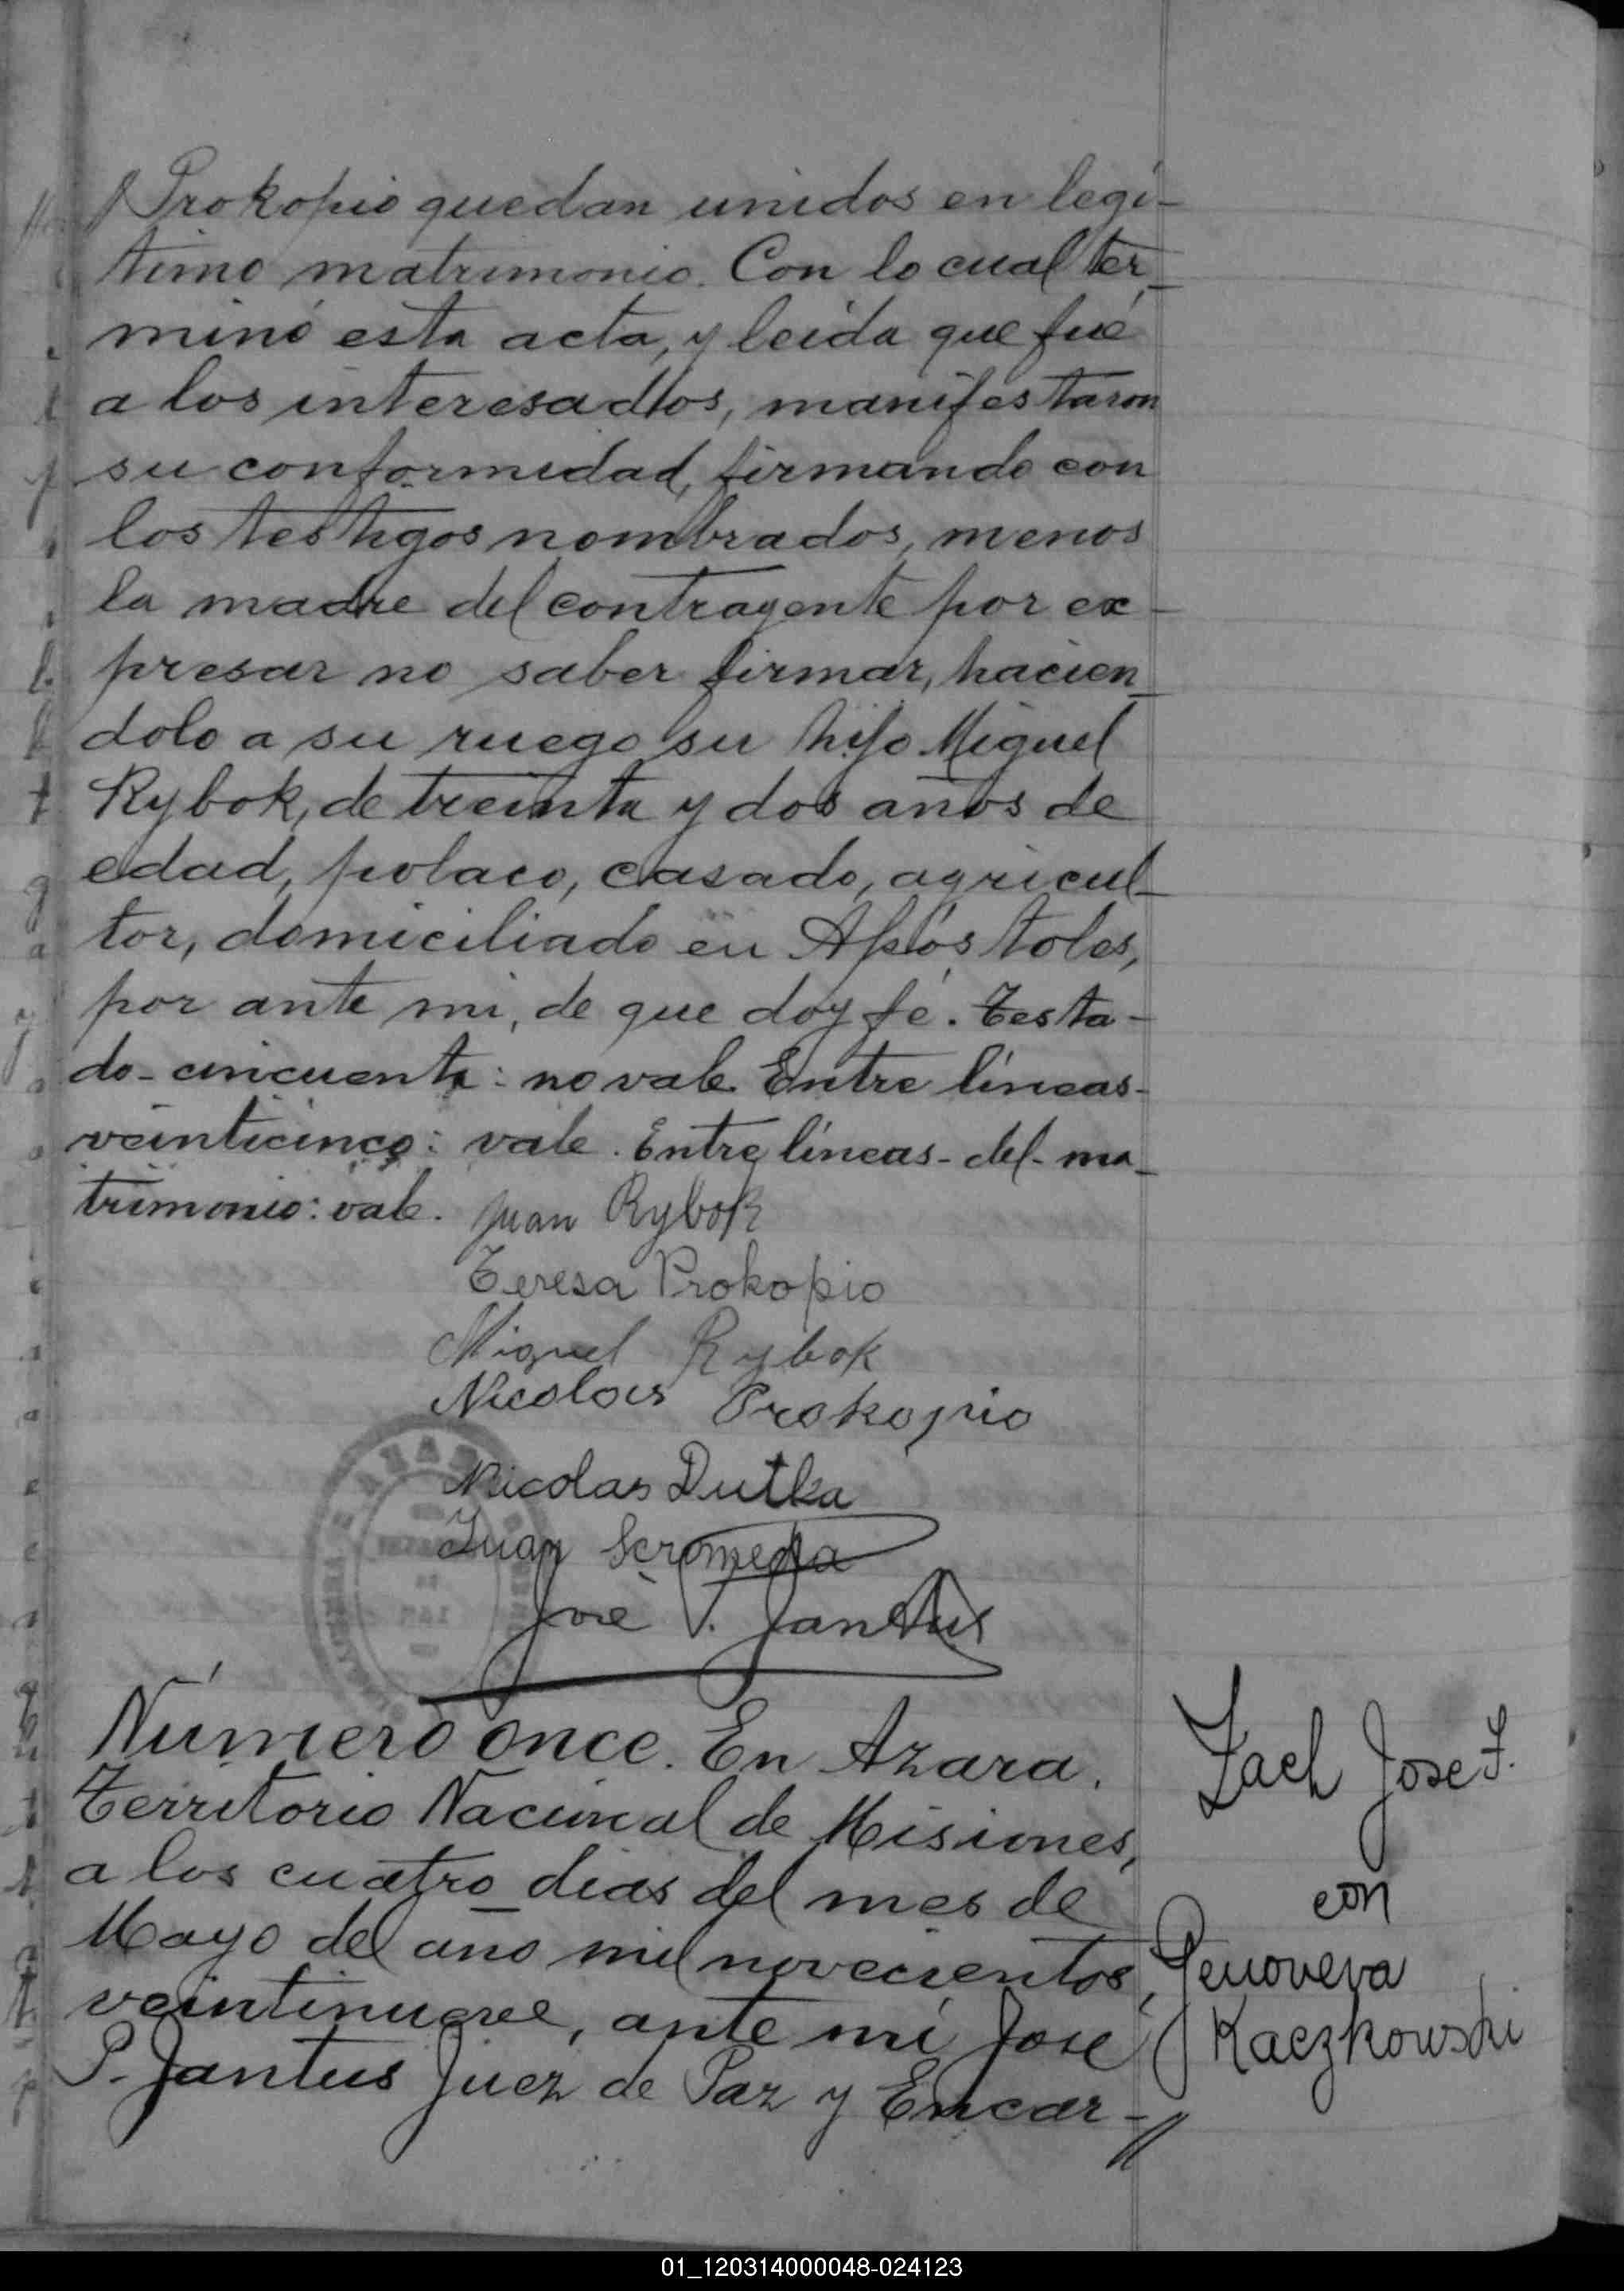 Prokopio quedan unidos en legi-
timo matrimonio. Con lo cual ter-
minó esta acta, y leida que fué
a los interesados, manifestaron
su conformidad, firmando con
los testigos nombrados, menos
la madre del contrayente por ex-
presar no saber firmar, hacien-
dolo a su ruego su hijo Miguel
Rybok, de treinta y dos años de
edad, polaco, casado, agricul-
tor, domiciliado en Apóstoles,
por ante mi, de que doy fé. Testa-
do-cincuenta: no vale. Entre líneas-
veinticinco: vale. Entre líneas-del-ma-
trimonio: vale. Juan Rybok
Teresa Prokopio
Miguel Rybok
Nicolas Prokopio
Nicolas Dutka
Juan
José P. Jantus
Número once. En Azara,
Territorio Nacional de Misiones,
a los cuatro dias del mes de
Mayo del ano mil novecientos
veintinueve, ante mí José
P. Jantus Juez de Paz y Encar-//
Zach Jose F.
con
Genoveva
Kaczkowski
01_120314000048-024123